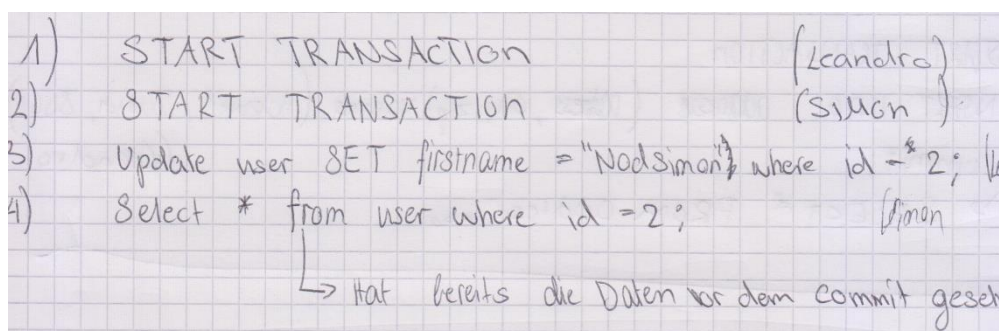 1) START TRANSACTION (Leandro)
2) START TRANSACTION (Simon)
3) Update user SET firstname = "Nodsimon" where id = 2;
4) Select * from user where id = 2; (Simon
↳ Hat bereits die Daten vor dem commit geseh